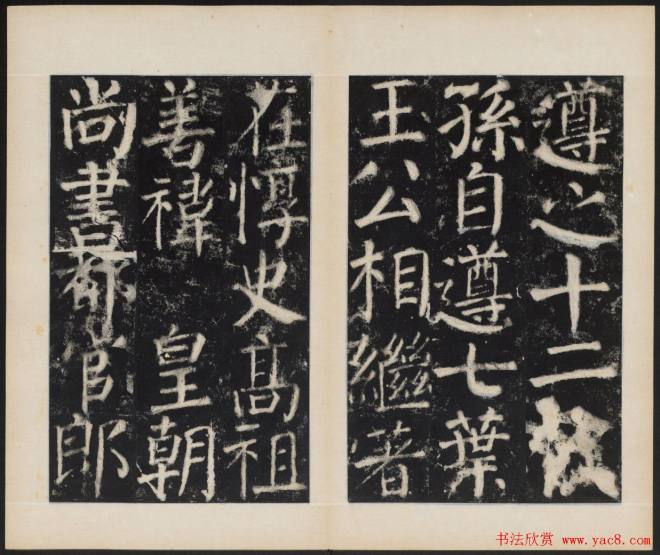 遵之十二
孫自遵七葉
王公相繼著
在惇史高祖
善禕 皇朝
尚書都官郎
书法欣赏 www.yac8.com